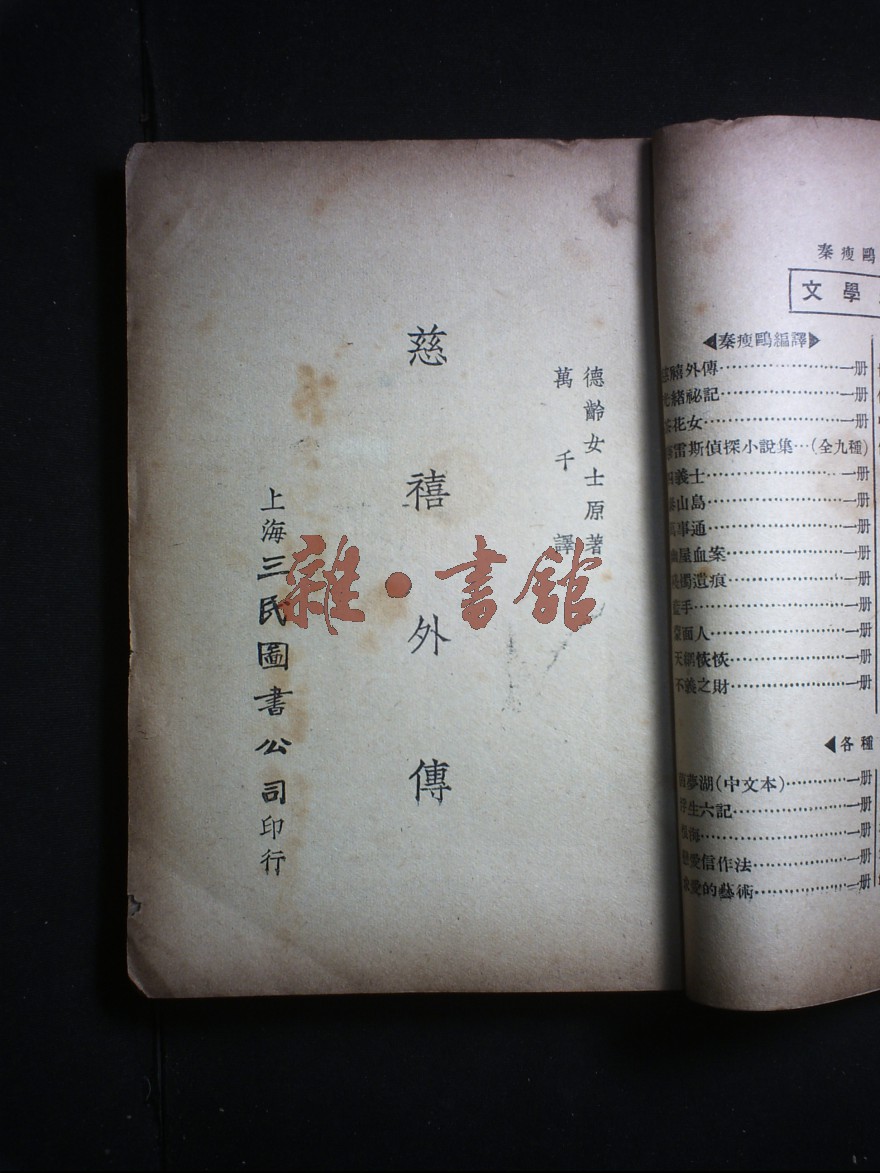 德齡女士原著
萬千譯
慈禧外傳
上海三民圖書公司印行
雜·書館
秦瘦鷗
文學
◀秦瘦鷗編譯▶
禧外傳……一册
緒祕記……一册
花女……一册
雷斯偵探小說集…(全九種)
義士……一册
山島……一册
事通……一册
屋血案……一册
遺痕……一册
手……一册
蒙面人……一册
天網恢恢……一册
不義之財……一册
◀各種
夢湖(中文本)……一册
浮生六記……一册
海……一册
戀愛信作法……一册
愛的藝術……一册